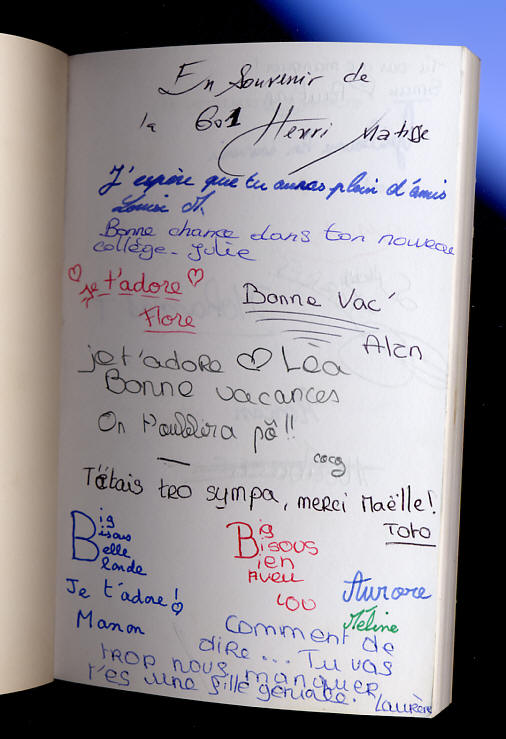 En Souvenir de
la 601 Henri Matisse
J'espère que tu auras plein d'amis
Louise M.
Bonne chance dans ton nouveau
collège. Julie
Je t'adore
Flore
Bonne Vac'
Alan
je t'adore ♡ Lèa
Bonne vacances
On t'oublira pô !!
coco
T'étais tro sympa, merci Maëlle!
Toto
Big
Bisous
Belle
Blonde
Je t'adore!
Manon
Big
Bisous
Bien
Baveu
LOU
Aurore
Méline
Comment te
dire... Tu vas
trop nous manquer
t'es une fille géniale. Laurène